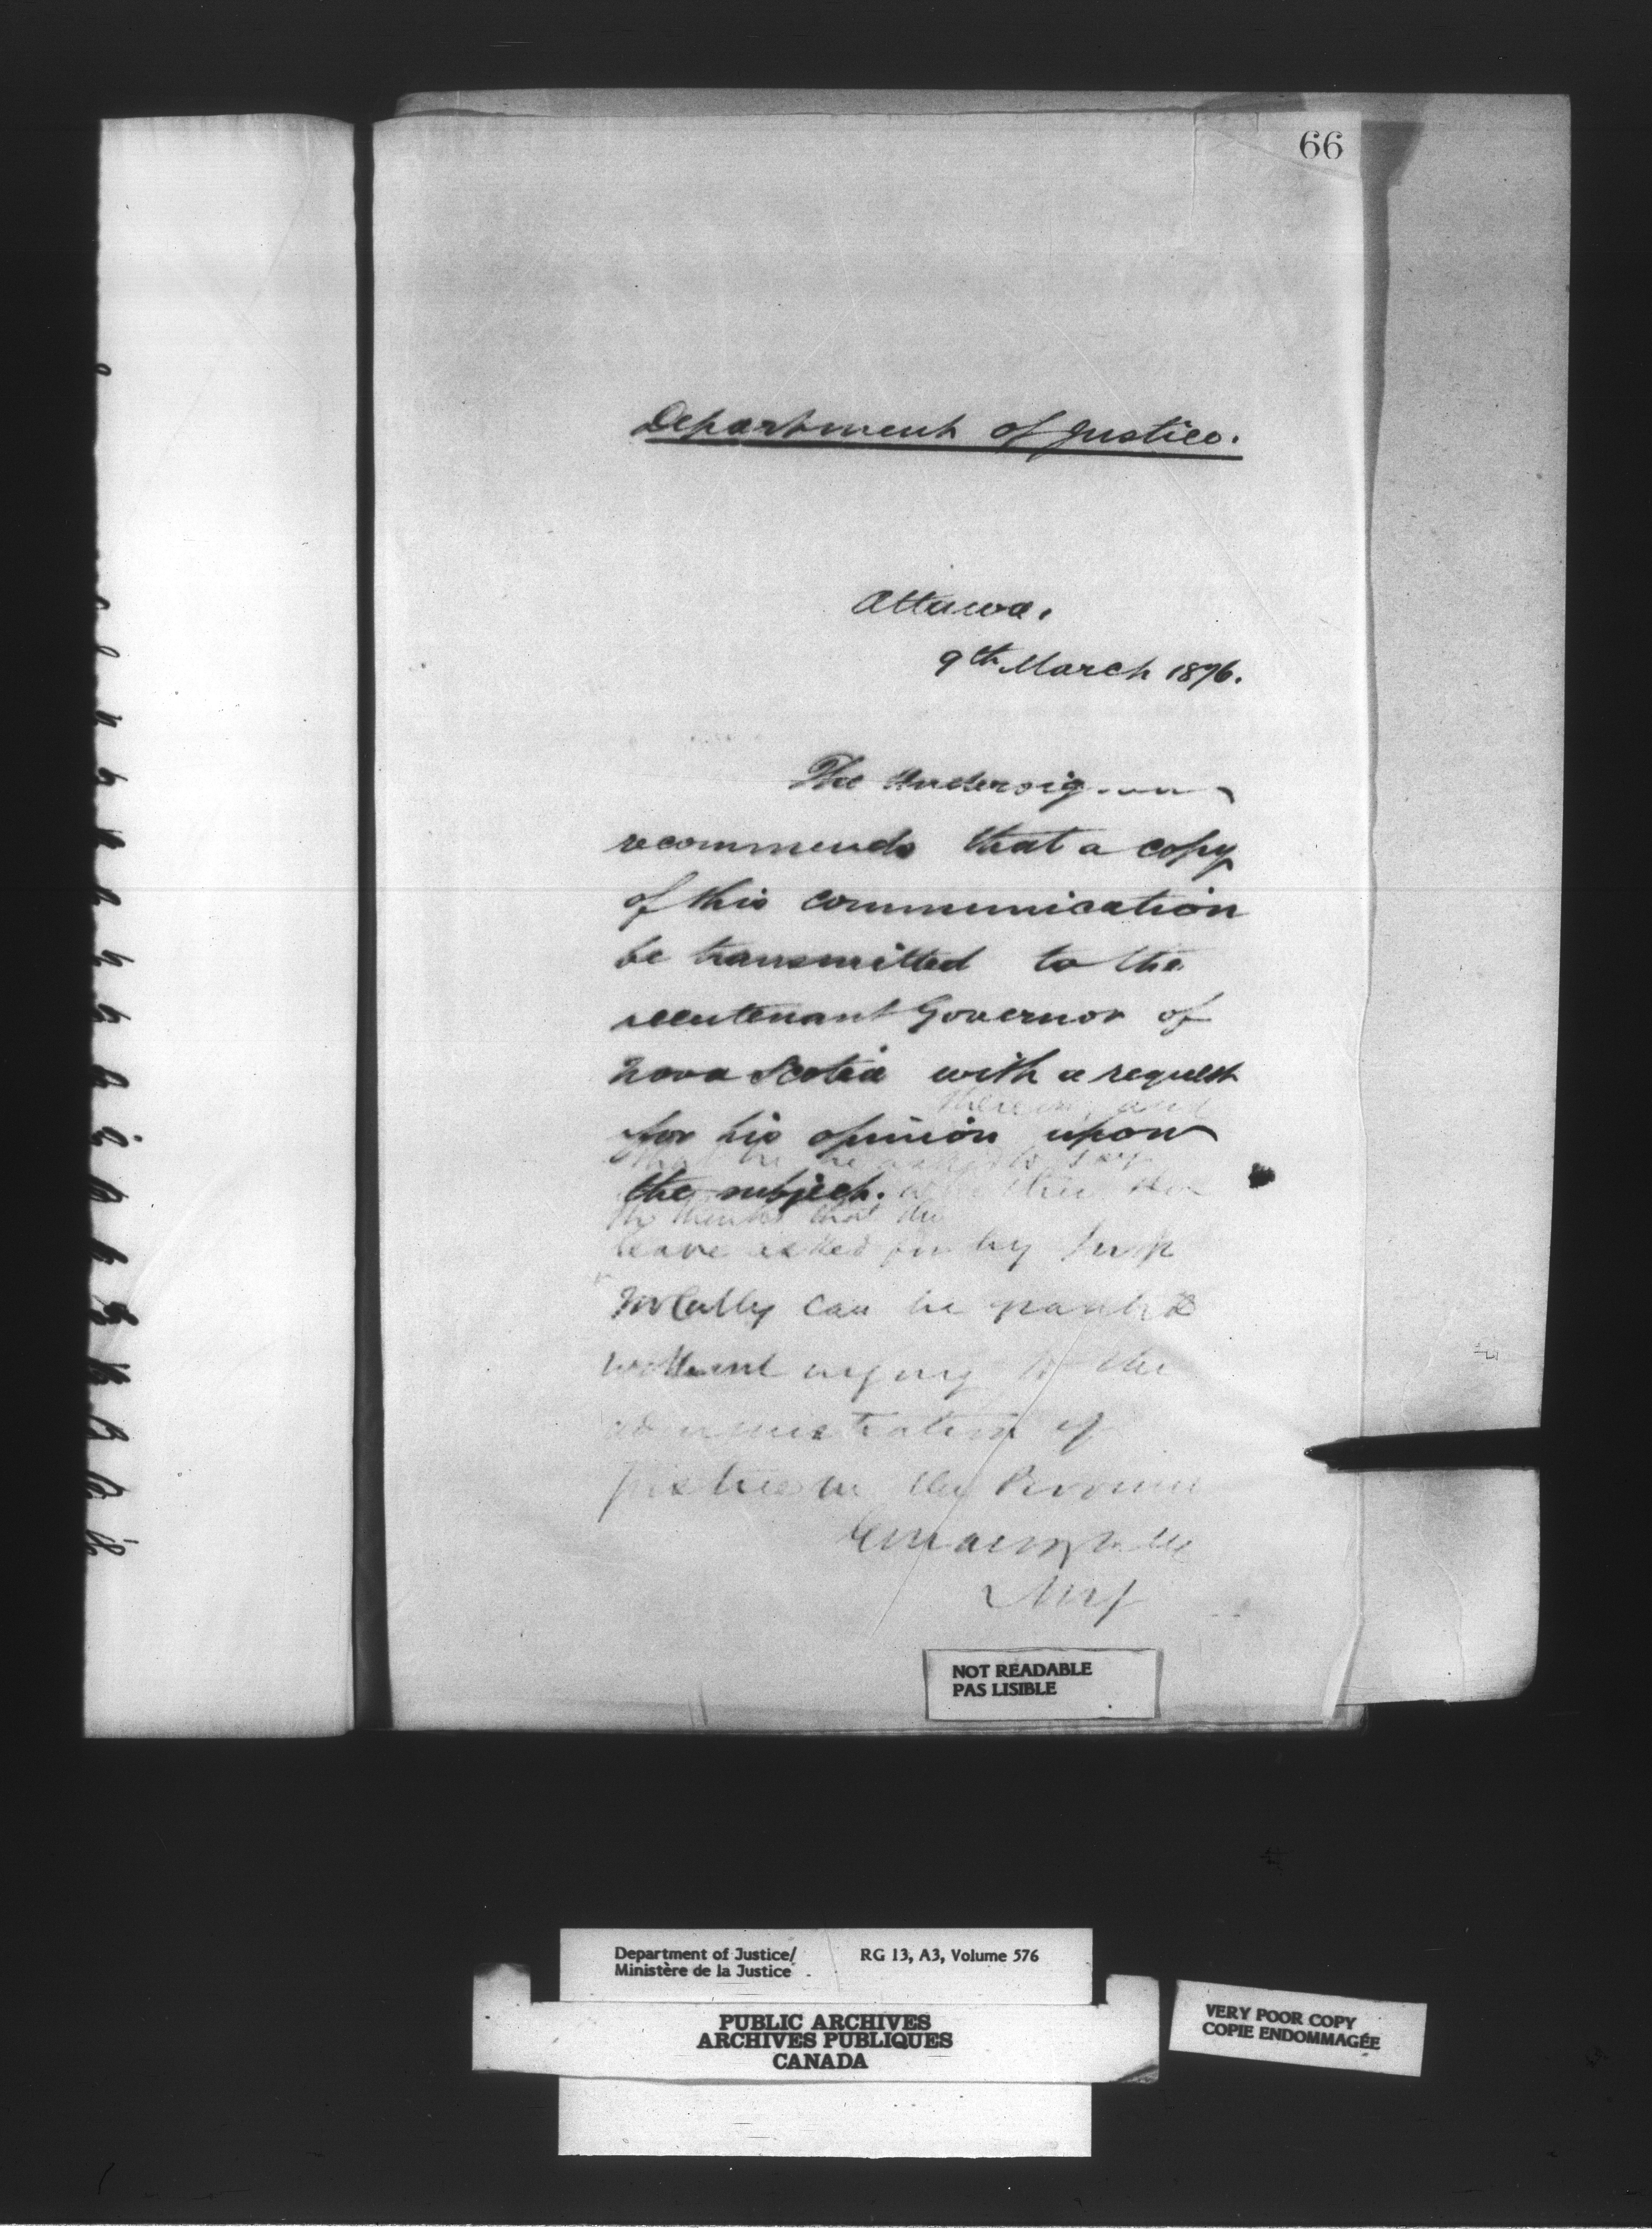 66
Department of Justice.
Ottawa.
9th March 1876.
The Undersig
recommends that a copy
of this communication
be transmitted to the
Lieutenant Governor of
Nova Scotia with a request
therein, and
for his opinion upon
that he be asked to say
the subject. whether
he thinks that the
leave asked for by
McCully can be granted
without injury to the
administration of
justice in the Province
NOT READABLE
PAS LISIBLE
Department of Justice/
Ministère de la Justice
RG 13, A3, Volume 576
PUBLIC ARCHIVES
ARCHIVES PUBLIQUES
CANADA
VERY POOR COPY
COPIE ENDOMMAGÉE